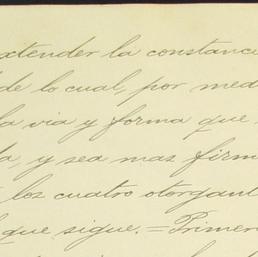 extender la constanc
de lo cual, por med
la via y forma que
la, y sea mas firm
los cuatro otorgant
que sigue.=Primer